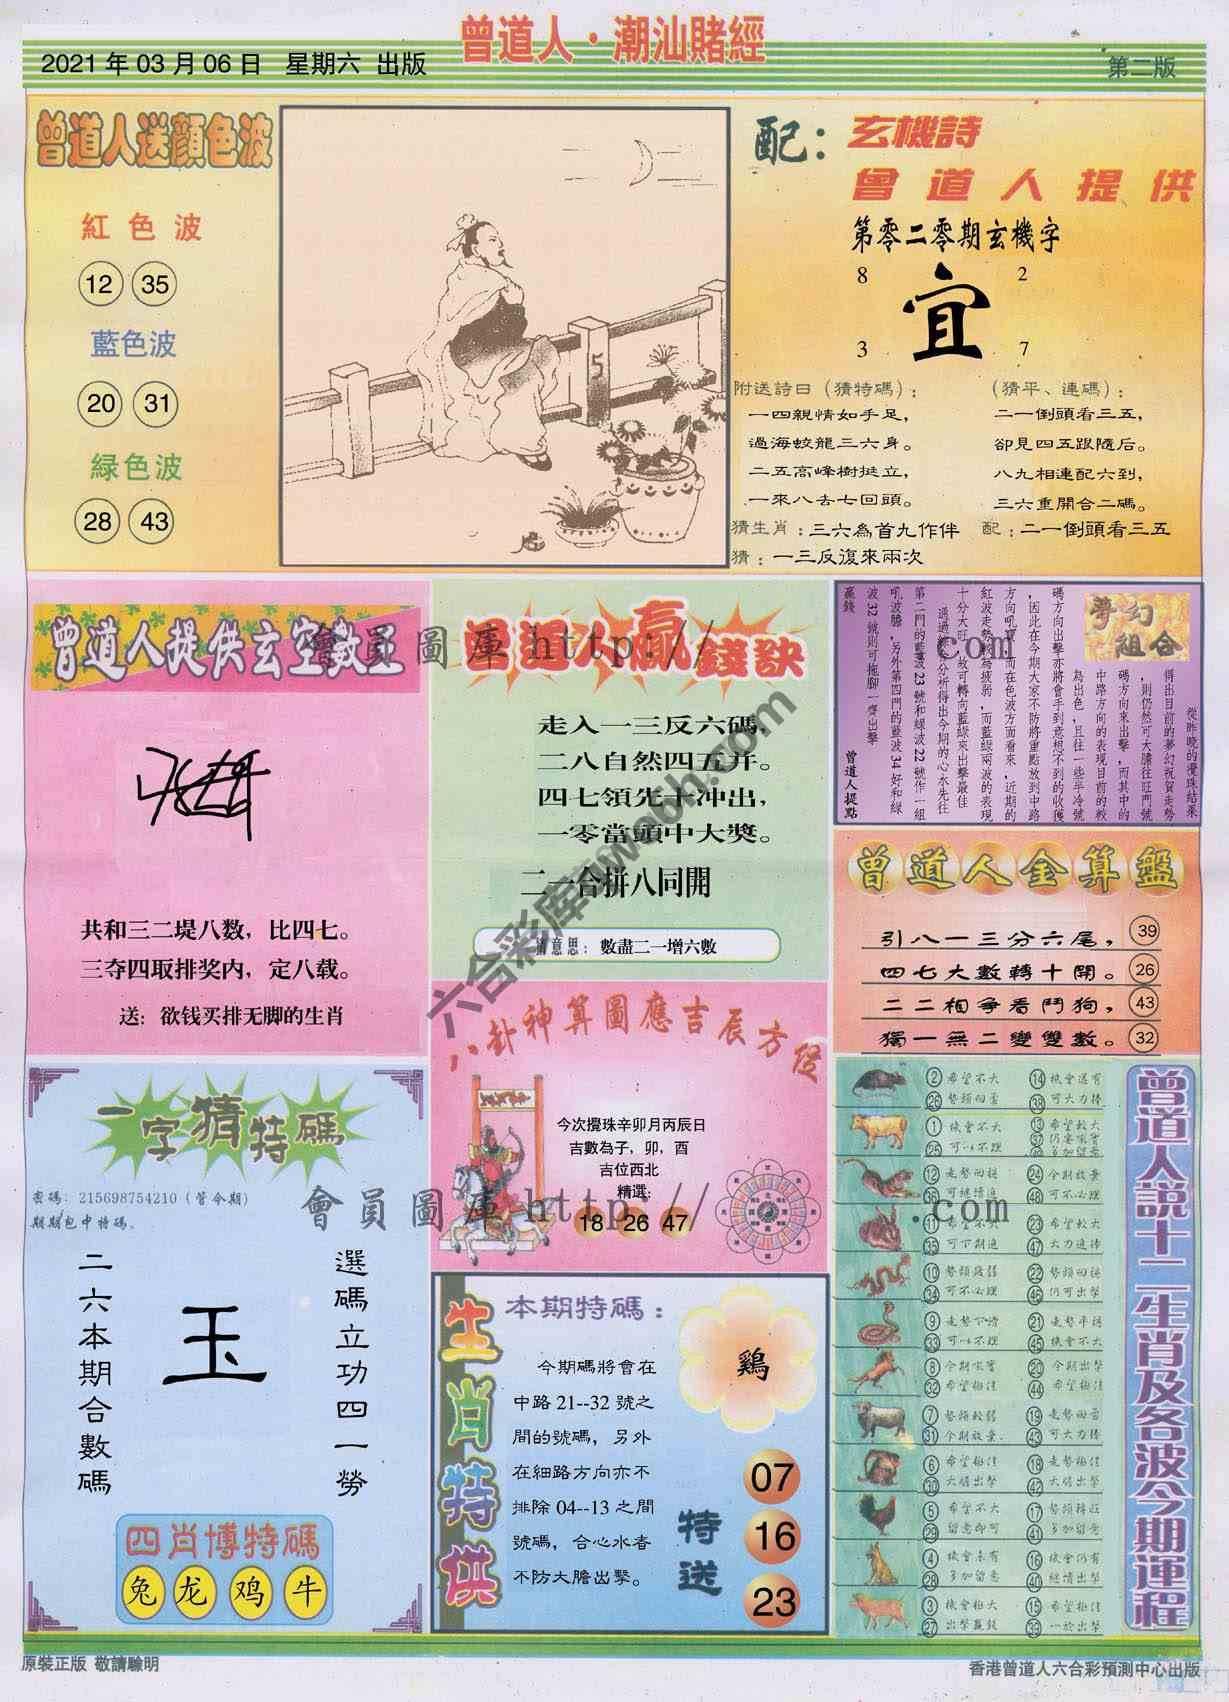 曾道人·潮汕賭經
2021年03月06日 星期六 出版
第二版
曾道人送顏色波
紅色波
12 35
藍色波
20 31
緑色波
28 43
5
配：玄機詩
曾道人提供
第零二零期玄機字
8 2
宜
3 7
附送詩曰（猜特碼）：
一四親情如手足，
過海蛟龍三六身。
二五高峰樹挺立，
一來八去七回頭。
（猜平、連碼）：
二一倒頭看三五，
卻見四五跟隨后。
八九相連配六到，
三六重開合二碼。
猜生肖：三六為首九作伴
配：二一倒頭看三五
猜：一三反復來兩次
曾道人提供玄空數
共和三二堤八数，比四七。
三夺四取排奖内，定八载。
送：欲钱买排无脚的生肖
曾道人贏錢訣
走入一三反六碼
二八自然四五并。
四七領先十冲出，
一零當頭中大獎。
二一合拼八同開
猜意思：數盡二一增六數
夢幻組合
從昨晚的攪珠結果
得出目前的夢幻祝賀走勢
，則仍然可大膽往旺門號
碼方向來出擊，而其中的
中路方向的表現目前的較
為出色，且往一些半冷號
碼方向出擊亦將會手到意想不到的收獲
，因此在今期大家不防將重點放到中路
方向吼寶，而在色波方面看來，近期的
紅波走勢較為疲弱，而藍綠兩波的表現
十分大旺，故可轉向藍綠來出擊最佳
通過綜合分析得出今期的心水先往
第二門的藍波23號和绿波22號作一組
吼波膽，另外第四門的藍波34好和綠
波32號則可拖腳一齊出擊
贏錢
曾道人提點
曾道人金算盤
引八一三分六尾，39
四七大數轉十開。26
二二相爭看鬥狗，43
獨一無二變雙數。32
八卦神算圖應吉辰方位
今次攪珠辛卯月丙辰日
吉數為子，卯，酉
吉位西北
精選：
18 26 47
一字猜特碼
密碼：215698754210（管令期）
期期包中特碼。
二六本期合數碼
玉
選碼立功四一勞
四肖博特碼
兔 龙 鸡 牛
生肖特供
本期特碼：
今期碼將會在
中路21--32號之
間的號碼，另外
在細路方向亦不
排除04--13之間
號碼，合心水者
不防大膽出擊。
鷄
特送
07
16
23
曾道人說十二生肖及各波今期運程
② 希望不大 ⑭ 機會還有
㉖ 勢頭回落 ㊳ 可大力捧
① 機會不大 ⑬ 希望較大
㉕ 可以不理
⑫ 走勢回穩 ㉔ 今期放棄
可繼續追 ㊽ 可不必理
⑪ 希望不大 ㉓ 希望較大
㉟ 可下期追 ㊼ 大力追捧
⑩ 勢頭疲弱 ㉒ 勢頭回穩
㉞ 可不必理 ㊻ 仍可出擊
⑨ 走勢下滑 ㉑ 走勢平穩
㉝ 可以不理 ㊺ 機會不大
⑧ 今期吼寶 ⑳ 今期出擊
㉜ 希望極佳 ㊹ 希望極佳
⑦ 勢頭較弱 ⑲ 走勢回落
㉛ 今期放棄 ㊸ 可大力捧
⑥ 希望極佳 ⑱ 走勢極佳
㉚ 大膽出擊 ㊷ 大膽出擊
⑤ 希望不大 ⑰ 勢頭轉旺
㉙ 留意即可 ㊶ 多加留意
④ 機會未有 ⑯ 機會仍有
㉘ 多加留意 ㊵ 繼續出擊
③ 機會極大 ⑮ 希望極佳
㉗ 出擊贏錢 ㊴ 一於出擊
會員圖庫 http:// com
會員圖庫 http:// .com
六合彩库 w6bh.com
原裝正版 敬請驗明
香港曾道人六合彩預測中心出版